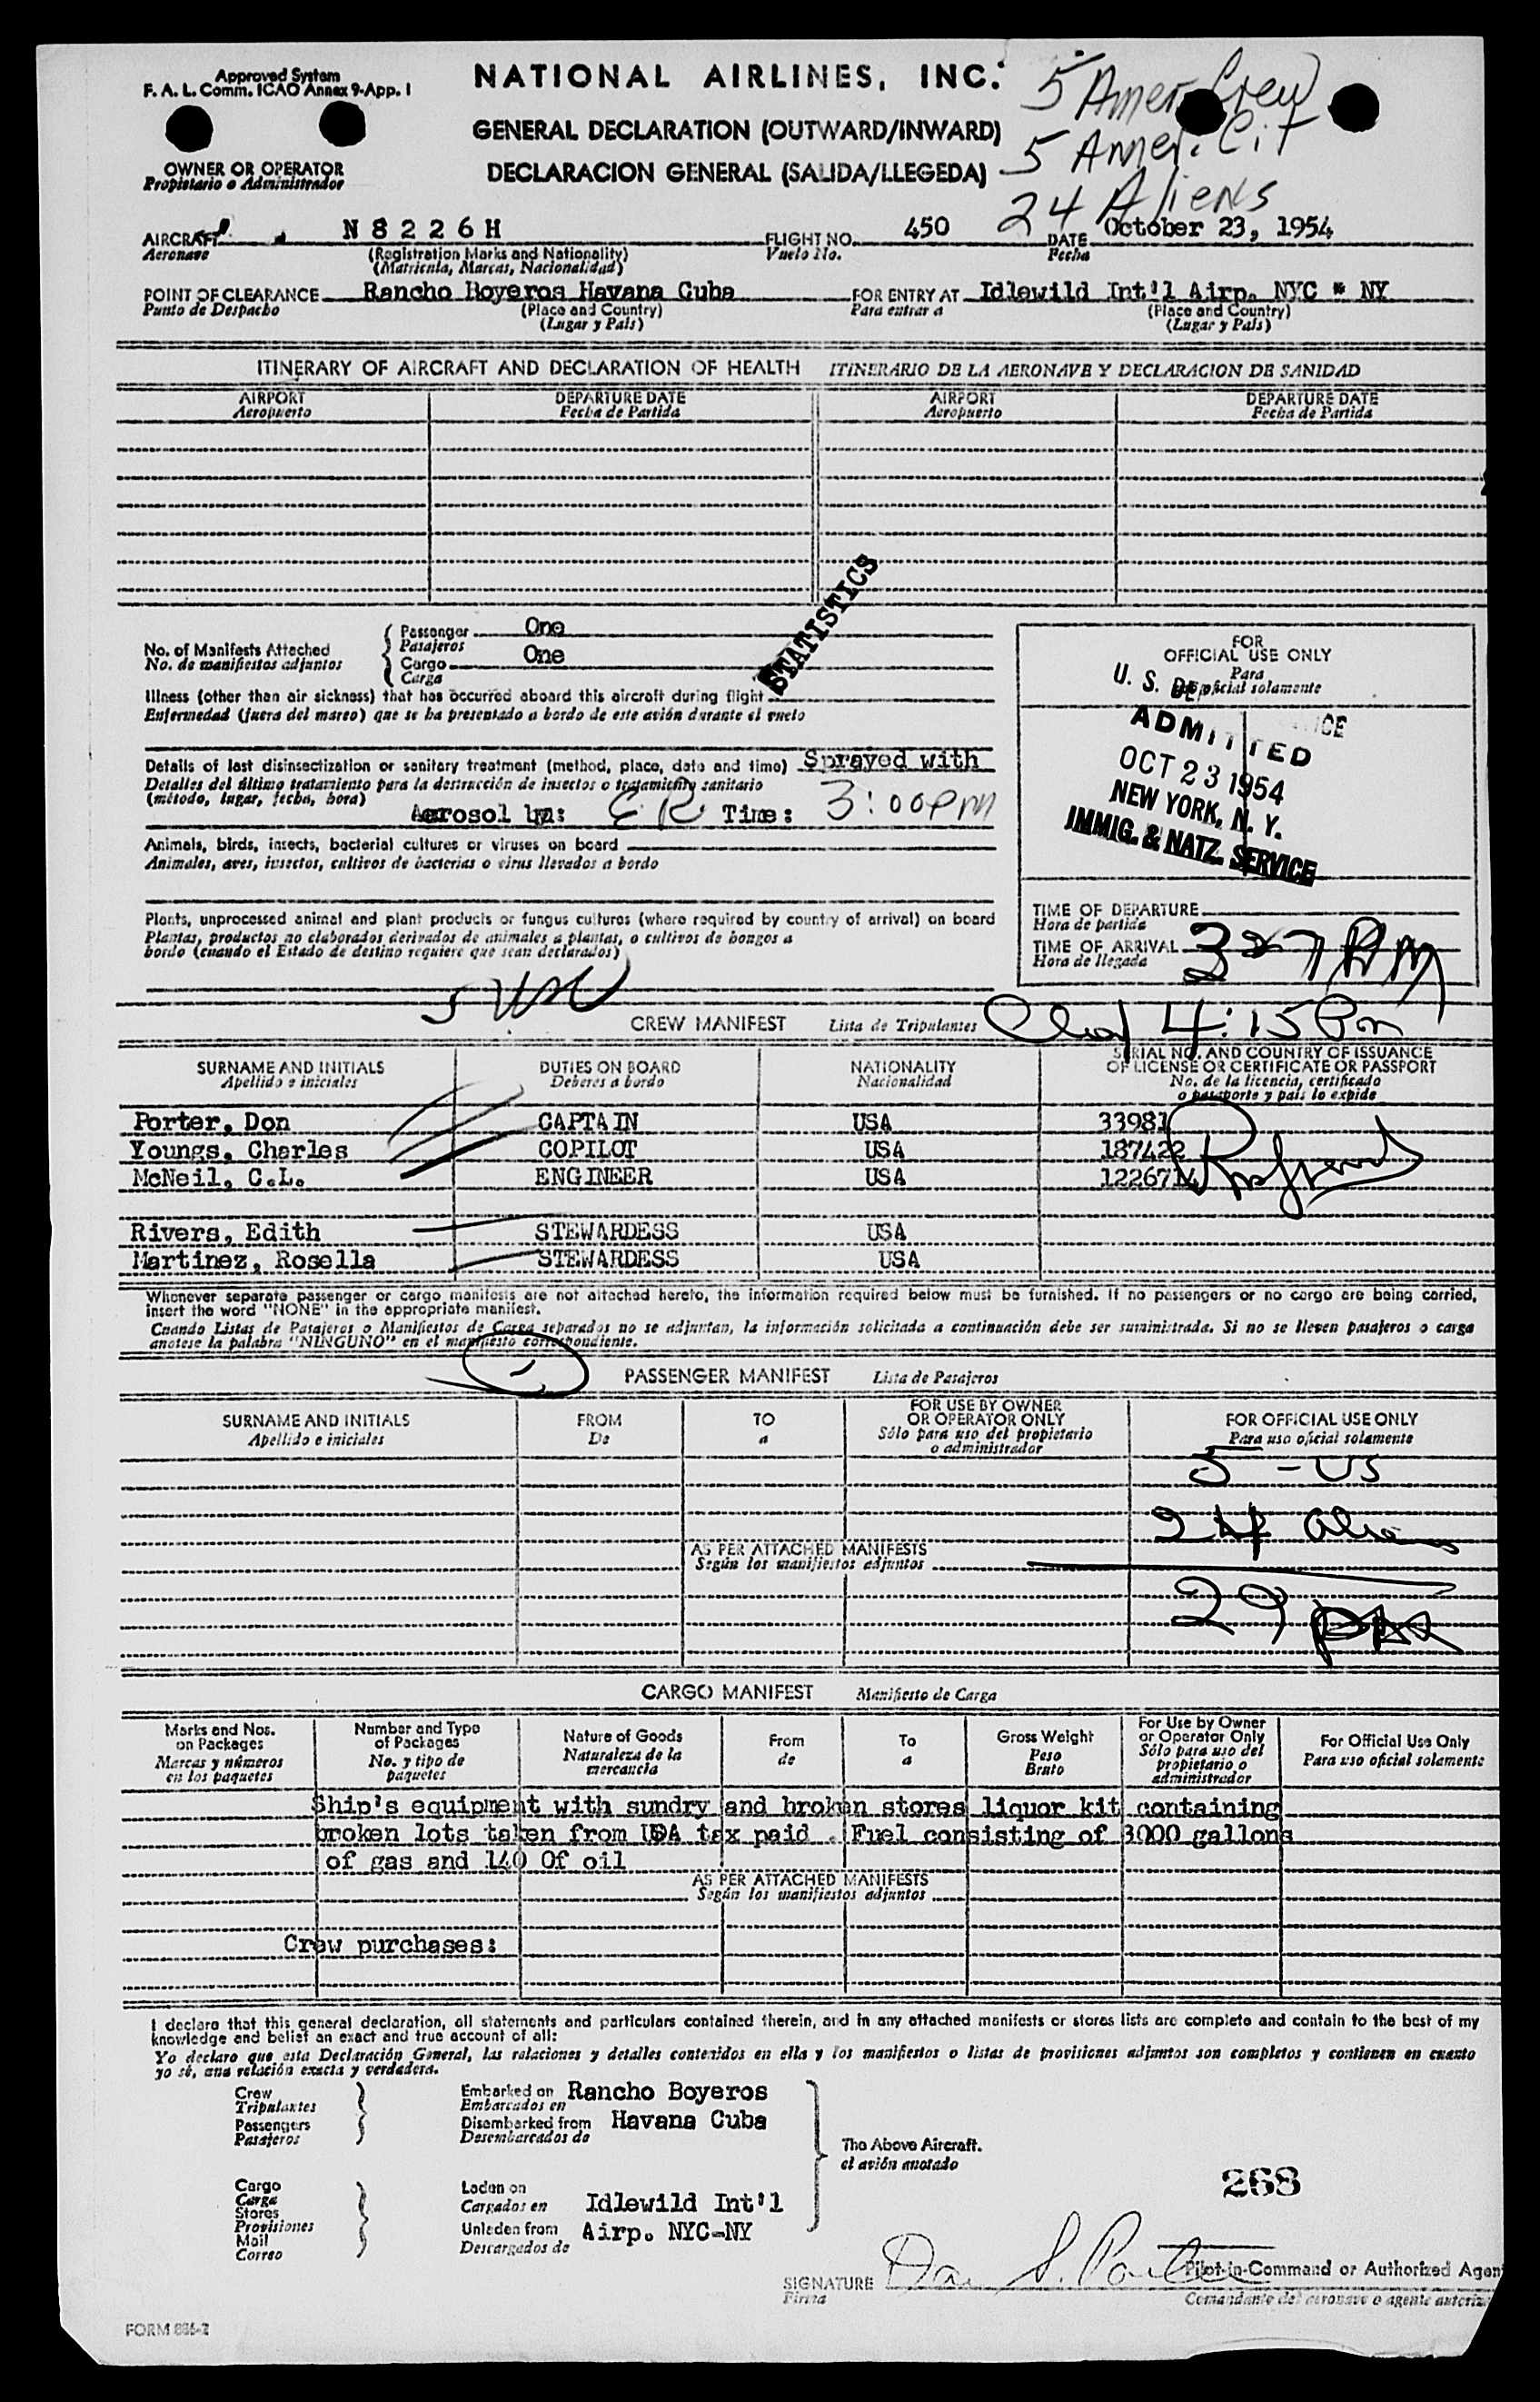 Approved System
F. A. L. Comm. ICAO Annex 9-App. I
NATIONAL AIRLINES, INC.
5 Amer. Crew
5 Amer. Cit
24 Aliens
GENERAL DECLARATION (OUTWARD/INWARD)
DECLARACION GENERAL (SALIDA/LLEGEDA)
OWNER OR OPERATOR
Propietario o Administrador
AIRCRAFT N8226H FLIGHT NO. 450 DATE October 23, 1954
Aeronave (Registration Marks and Nationality) Vuelo No. Fecha
(Matricula, Marcas, Nacionalidad)
POINT OF CLEARANCE Rancho Boyeros Havana Cuba FOR ENTRY AT Idlewild Int'l Airp. NYC * NY
Punto de Despacho (Place and Country) Para entrar a (Place and Country)
(Lugar y País) (Lugar y País)
ITINERARY OF AIRCRAFT AND DECLARATION OF HEALTH ITINERARIO DE LA AERONAVE Y DECLARACION DE SANIDAD
AIRPORT DEPARTURE DATE AIRPORT DEPARTURE DATE
Aeropuerto Fecha de Partida Aeropuerto Fecha de Partida
STATISTICS
No. of Manifests Attached
No. de manifiestos adjuntos
Passenger One
Pasajeros
Cargo One
Carga
Illness (other than air sickness) that has occurred aboard this aircraft during flight
Enfermedad (fuera del mareo) que se ha presentado a bordo de este avión durante el vuelo
Details of last disinsectization or sanitary treatment (method, place, date and time) Sprayed with
Detalles del último tratamiento para la destrucción de insectos o tratamiento sanitario
(método, lugar, fecha, hora)
Aerosol by: E R Time: 3:00 PM
Animals, birds, insects, bacterial cultures or viruses on board
Animales, aves, insectos, cultivos de bacterias o virus llevados a bordo
Plants, unprocessed animal and plant products or fungus cultures (where required by country of arrival) on board
Plantas, productos no elaborados derivados de animales a plantas, o cultivos de hongos a
bordo (cuando el Estado de destino requiere que sean declarados)
FOR
OFFICIAL USE ONLY
Para
uso oficial solamente
U. S.
ADMITTED
OCT 23 1954
NEW YORK, N. Y.
IMMIG. & NATZ. SERVICE
TIME OF DEPARTURE
Hora de partida
TIME OF ARRIVAL 3 27 PM
Hora de llegada
4:15 Pm
CREW MANIFEST Lista de Tripulantes
SURNAME AND INITIALS DUTIES ON BOARD NATIONALITY SERIAL NO. AND COUNTRY OF ISSUANCE
Apellido e iniciales Deberes a bordo Nacionalidad OF LICENSE OR CERTIFICATE OR PASSPORT
No. de la licencia, certificado
o pasaporte y país lo expide
Porter, Don CAPTAIN USA 33981
Youngs, Charles COPILOT USA 187422
McNeil, C.L. ENGINEER USA 1226714
Rivers, Edith STEWARDESS USA
Martinez, Rosella STEWARDESS USA
Whenever separate passenger or cargo manifests are not attached hereto, the information required below must be furnished. If no passengers or no cargo are being carried,
insert the word "NONE" in the appropriate manifest.
Cuando Listas de Pasajeros o Manifiestos de Carga separados no se adjuntan, la información solicitada a continuación debe ser suministrada. Si no se lleven pasajeros o carga
anotese la palabra "NINGUNO" en el manifiesto correspondiente.
PASSENGER MANIFEST Lista de Pasajeros
SURNAME AND INITIALS FROM TO FOR USE BY OWNER OR OPERATOR ONLY FOR OFFICIAL USE ONLY
Apellido e iniciales De a Sólo para uso del propietario o administrador Para uso oficial solamente
5 - US
24
AS PER ATTACHED MANIFESTS
Según los manifiestos adjuntos
29
CARGO MANIFEST Manifiesto de Carga
Marks and Nos. on Packages Number and Type of Packages Nature of Goods From To Gross Weight For Use by Owner or Operator Only For Official Use Only
Marcas y números en los paquetes No. y tipo de paquetes Naturaleza de la mercancia de a Peso Bruto Sólo para uso del propietario o administrador Para uso oficial solamente
Ship's equipment with sundry and broken stores liquor kit containing
broken lots taken from USA tax paid . Fuel consisting of 3000 gallons
of gas and 140 Of oil
AS PER ATTACHED MANIFESTS
Según los manifiestos adjuntos
Crew purchases:
I declare that this general declaration, all statements and particulars contained therein, and in any attached manifests or stores lists are complete and contain to the best of my
knowledge and belief an exact and true account of all:
Yo declaro que esta Declaración General, las relaciones y detalles contenidos en ella y los manifiestos o listas de provisiones adjuntos son completos y contienen en cuanto
yo sé, una relación exacta y verdadera.
Crew Embarked on Rancho Boyeros
Tripulantes Embarcados en
Passengers Disembarked from Havana Cuba
Pasajeros Desembarcados de
The Above Aircraft.
el avión anotado
Cargo Laden on
Carga Cargados en Idlewild Int'l
Stores
Provisiones Unladen from Airp. NYC-NY
Mail Descargados de
Correo
268
SIGNATURE Don S. Porter Pilot-in-Command or Authorized Agen
Firma Comandante del aeronave o agente autoriz
FORM 886-2